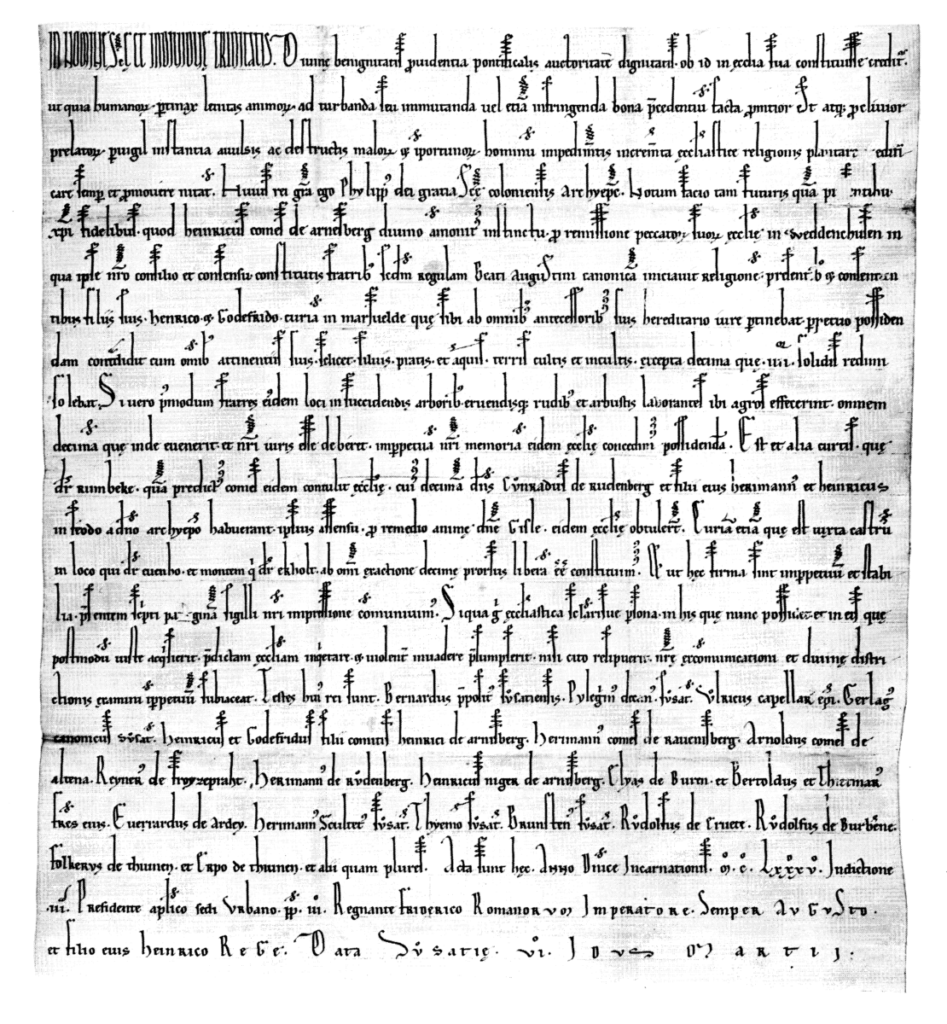 IN NOMINE SCE ET INDIVIDUE TRINITATIS. Divine benignitatis providentia pontificalis auctoritatis dignitatis. ob id in ecclia sua constituisse credit.
ut quia humanoꝝ. ptinax levitas animoꝝ. ad turbanda seu immutanda vel etiā infringenda bona pcedentiū facta. pmtior est atq; pclivior
prelatoꝝ. pvigil instantia avulsis ac destructis maloꝝ & iportunoꝝ. hominū impedimtis incremta ecclesiastice religionis plantare. edifi
care semp et pmovere nitat. Huius rei gra ego Phylipp dei gratia Sce coloniensis Archyepc. Notum facio tam futuris quā psentibus
xpi fidelibus. quod heinricus comes de arnesberg divino amonit instinctu. p remissione peccatoꝝ suoꝝ eccliē in Weddenchusen in
qua ipse nro consilio et consensu constitutis fratrib secdm regulam Beati Augustini canonicā iniciavit religionē. psentib & consentien
tibus filiis suis. henrico & Godefrido. curiā in marsvelde quę sibi ab omnib antecessorib suis hereditario iure ptinebat. ppetuo possiden
dam contradidit cum omib attinentiis suis. scilicet silvis. pratis. et aquis. terris cultis et incultis. excepta decima quę. iiii. solidis redimi
solebat. Si vero pmodum fratres eidem loci in succidendis arborib. eruendisq; rudib et arbustis laborantes ibi agros effecerint. omnem
decimā quę inde evenerit. et nri iuris esse deberet. inppetuā nri memoriā eidem eccliē concedim possidendā. Est et alia curtis. quę
dr Rumbeke. quā predict comes eidem contulit eccliē. cui decimā dns Cunradus de Rudenberg et filii eius herimann et heinricus
in feodo a dno archyepo habuerant. ipsius assensu. p remedio anime dne Gisle. eidem eccliē obtulert. Curiā etiā que est iuxta castrū
in loco qui dr evenho. et montem q dr ekholt. ab omi exactione decime prorsus libera ee constituim. Ut hec firma sint inppetuū et stabi
lia. psentem scpti paginā sigilli nri impressione comunivim. Si qua g ecclesiastica sclarisve psona in his que nunc possidet. et in eis que
postmodū iuste acqsierit. pdictam eccliam inqetare. & violent invadere psumpserit. nisi cito resipuerit. nrę excomunicationi et divine distri
ctionis examini ippetuū subiaceat. Testes hui rei sunt. Bernardus pposit susatiensis. Pylegrim decan. susat. Ulricus capellari epi. Gerlag
canonicus susat. Heinricus et Godefridus filii comitis heinrici de arnesberg. Herimann comes de ravensberg. Arnoldus comes de
altena. Reyner de froyzeprahc. Herimann de Rudenberg. Heinricus niger de arnesberg. Elyas de Buren. et Bertoldus et Thietmar
fres eius. Everrardus de Ardey. Herimann Scultet susat. Thyemo susat. Brunsten susat. Rudolfus de Erwete. Rudolfus de Burbene.
folkerus de thunen. et Erpo de thunen. et alii quam plures. Acta sunt hęc. Anno Dnice Incarnationis. M. C. LXXXV. Indictione
.iii. Presidente aplice sedi Urbano. pp. iii. Regnante friderico Romanorvm Imperatore. Semper Avgvsto.
et filio eius Heinrico Rege. Data Susatię. vi. Idus Martii.